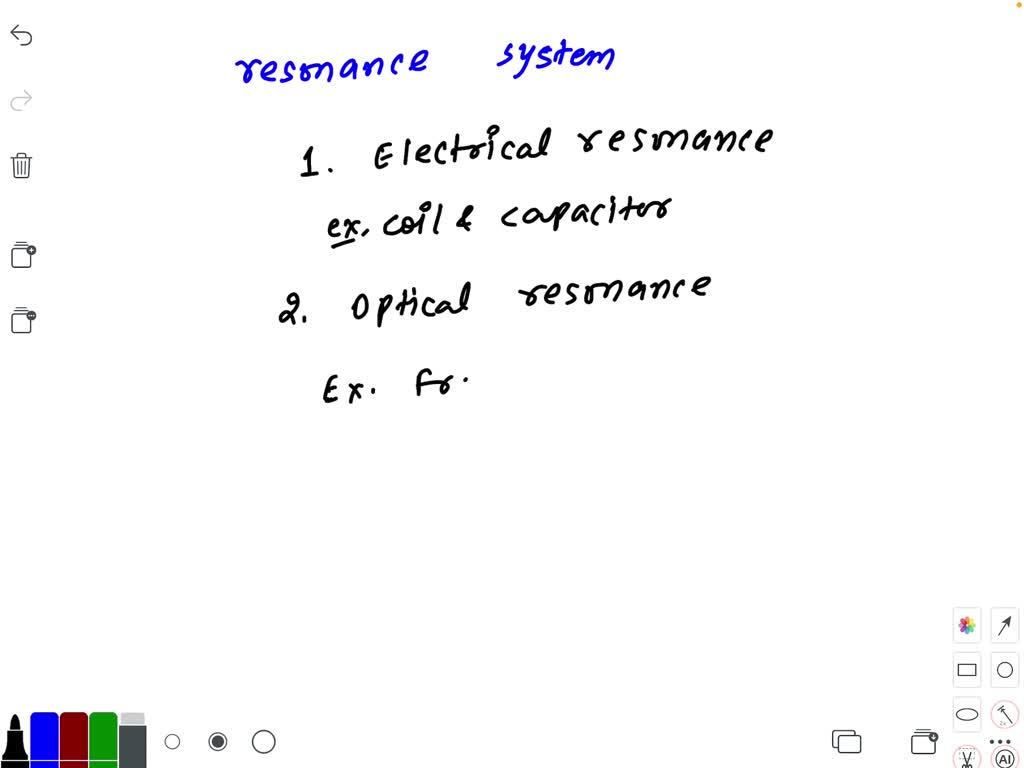 resonance system
1. Electrical resonance
ex. coil & capacitor
2. Optical resonance
Ex. Fr.
AI